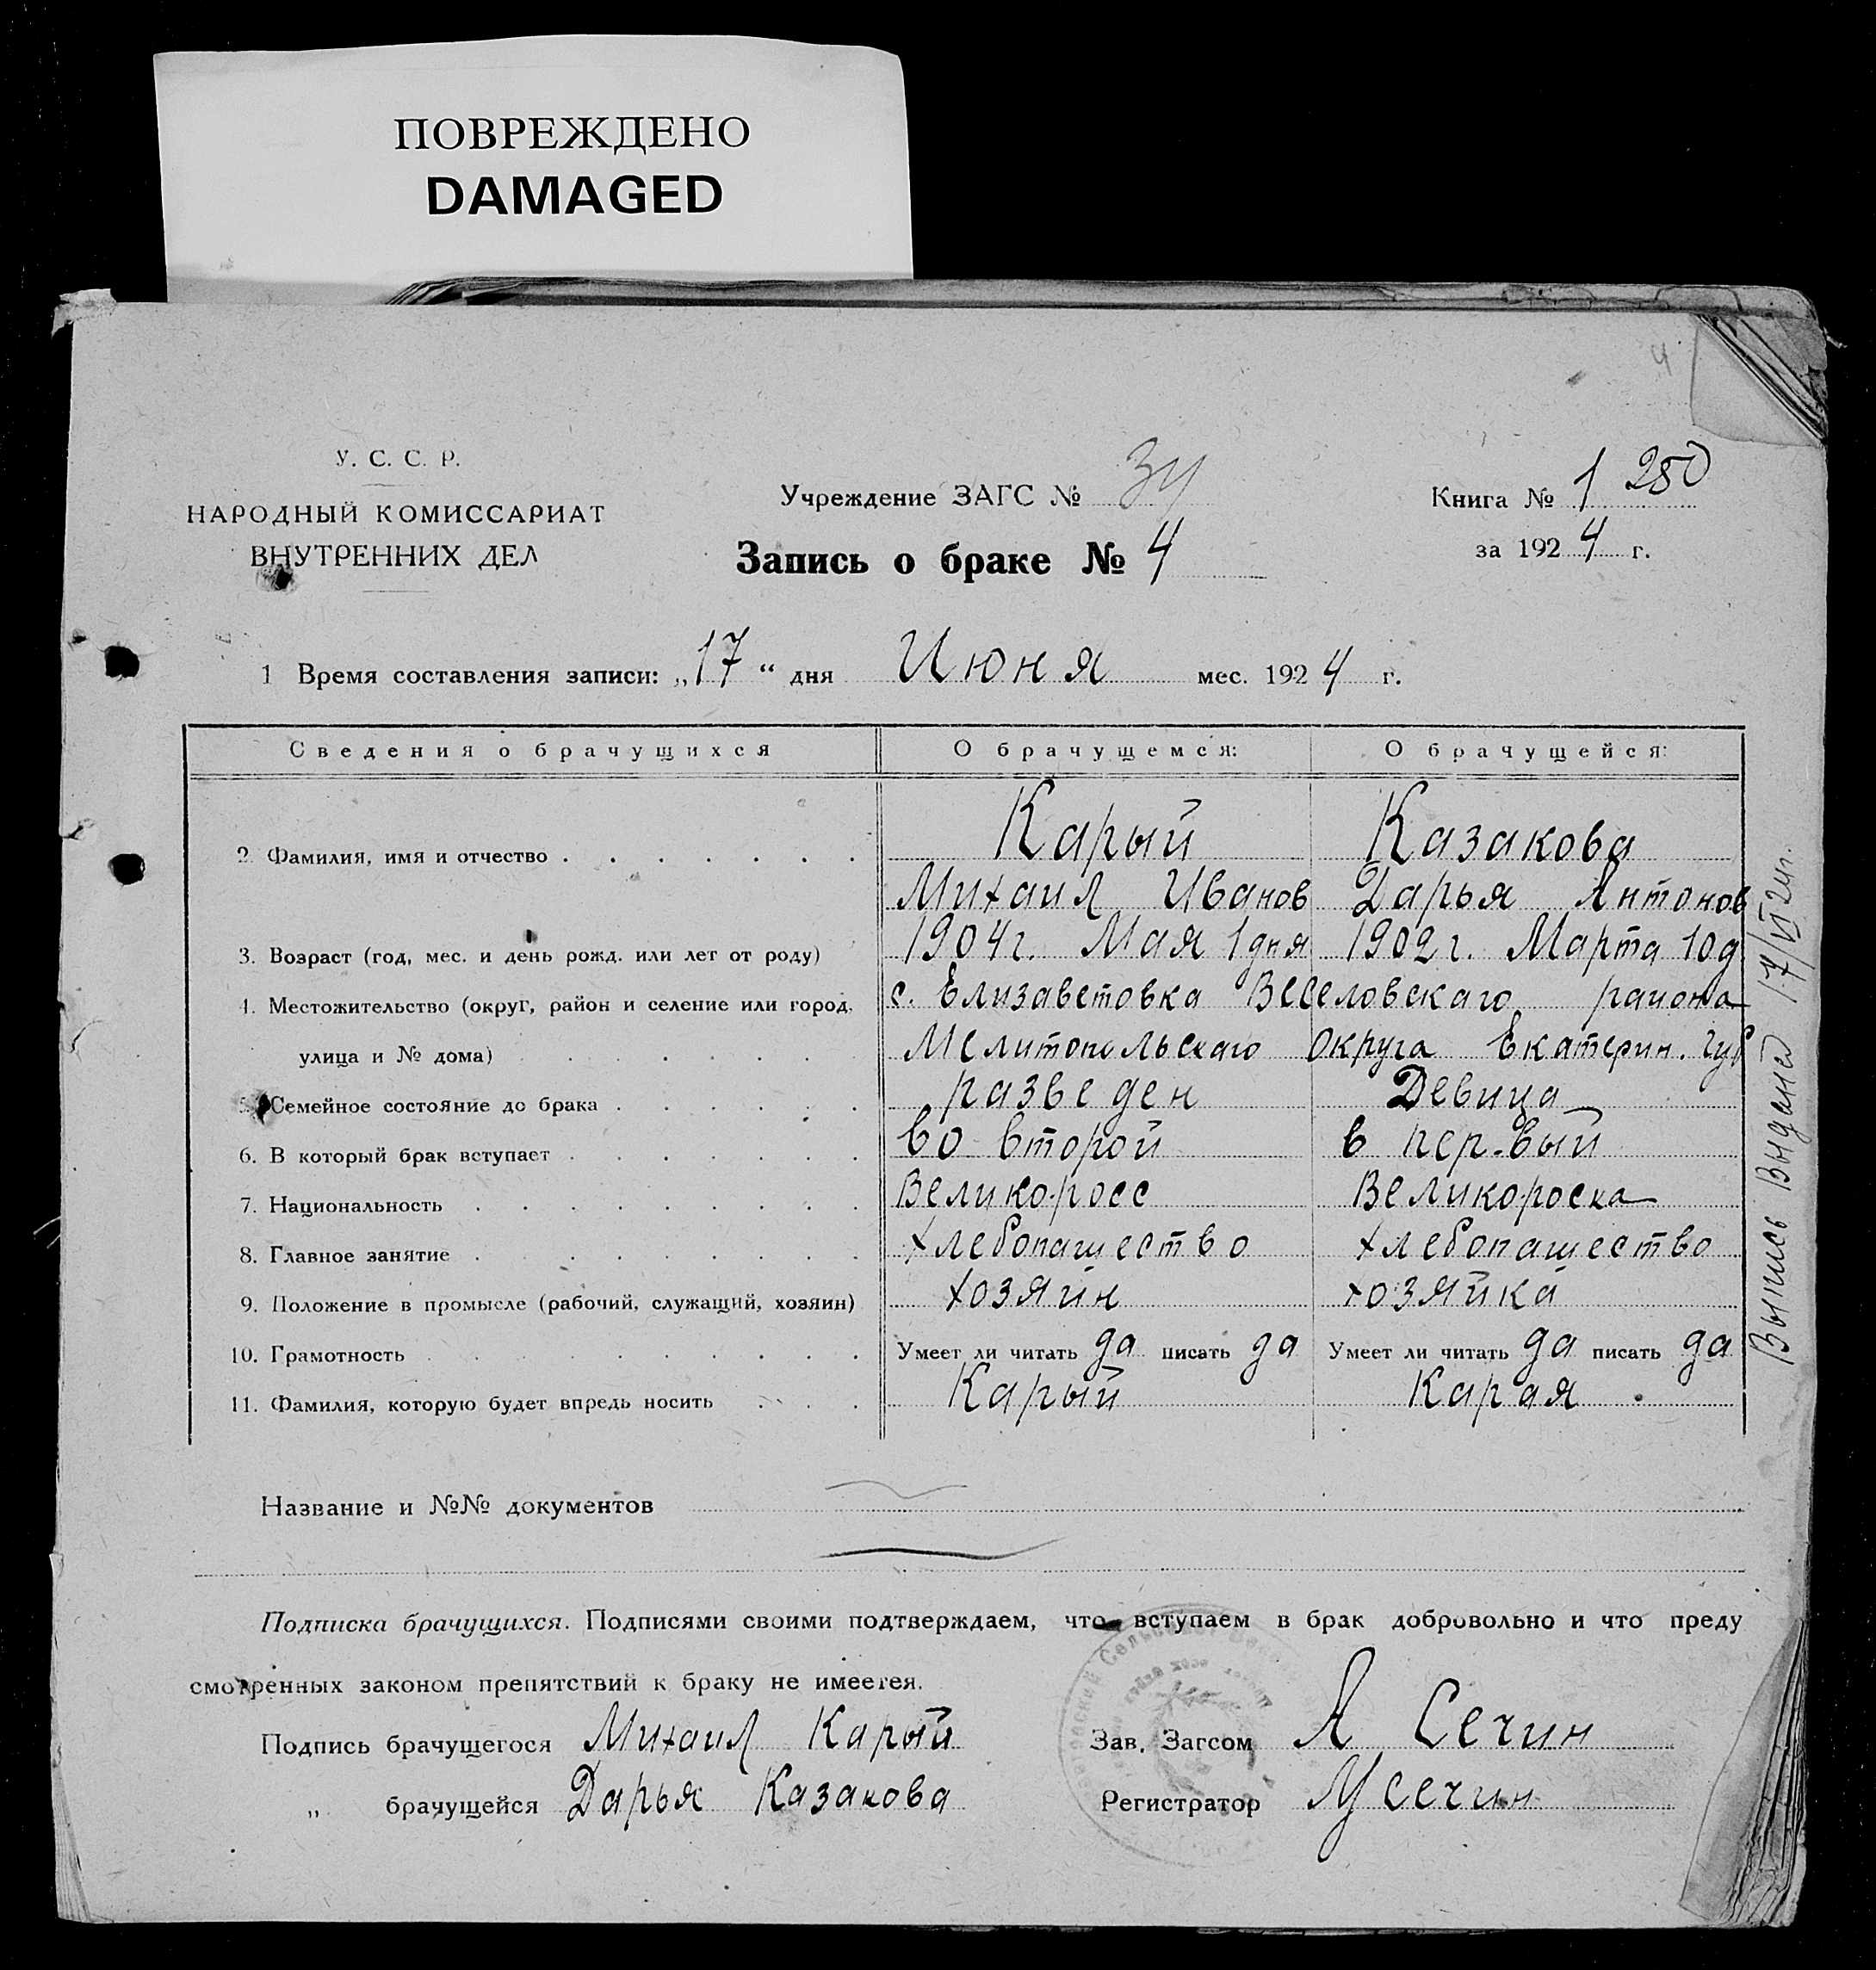 ПОВРЕЖДЕНО
DAMAGED
4
У. С. С. Р.
НАРОДНЫЙ КОМИССАРИАТ
ВНУТРЕННИХ ДЕЛ
Учреждение ЗАГС №
Запись о браке № 4
Книга № 1 280
за 1924 г.
1 Время составления записи: „17“ дня Июня мес. 1924 г.
Сведения о брачущихся О брачущемся: О брачущейся:
2. Фамилия, имя и отчество Карый Казакова
Михаил Иванов Дарья Антонов
3. Возраст (год, мес. и день рожд. или лет от роду) 1904г. Мая 1дня 1902г. Марта 10д
4. Местожительство (округ, район и селение или город, с. Елизаветовка Веселовскаго района
улица и № дома) Мелитопольскаго Округа Екатерин. Губ
5. Семейное состояние до брака разведен Девица
6. В который брак вступает во второй в пер-вый
7. Национальность Велико-росс Великороска
8. Главное занятие хлебопашество хлебопашество
9. Положение в промысле (рабочий, служащий, хозяин) хозяин хозяйка
10. Грамотность Умеет ли читать да писать да Умеет ли читать да писать да
11. Фамилия, которую будет впредь носить Карый Карая
Выпись выдана 17/VI 24г.
Название и №№ документов
Подписка брачущихся. Подписями своими подтверждаем, что вступаем в брак добровольно и что преду
смотренных законом препятствий к браку не имеется.
Подпись брачущегося Михаил Карый Зав. Загсом Я Сечин
„ брачущейся Дарья Казакова Регистратор Сечин